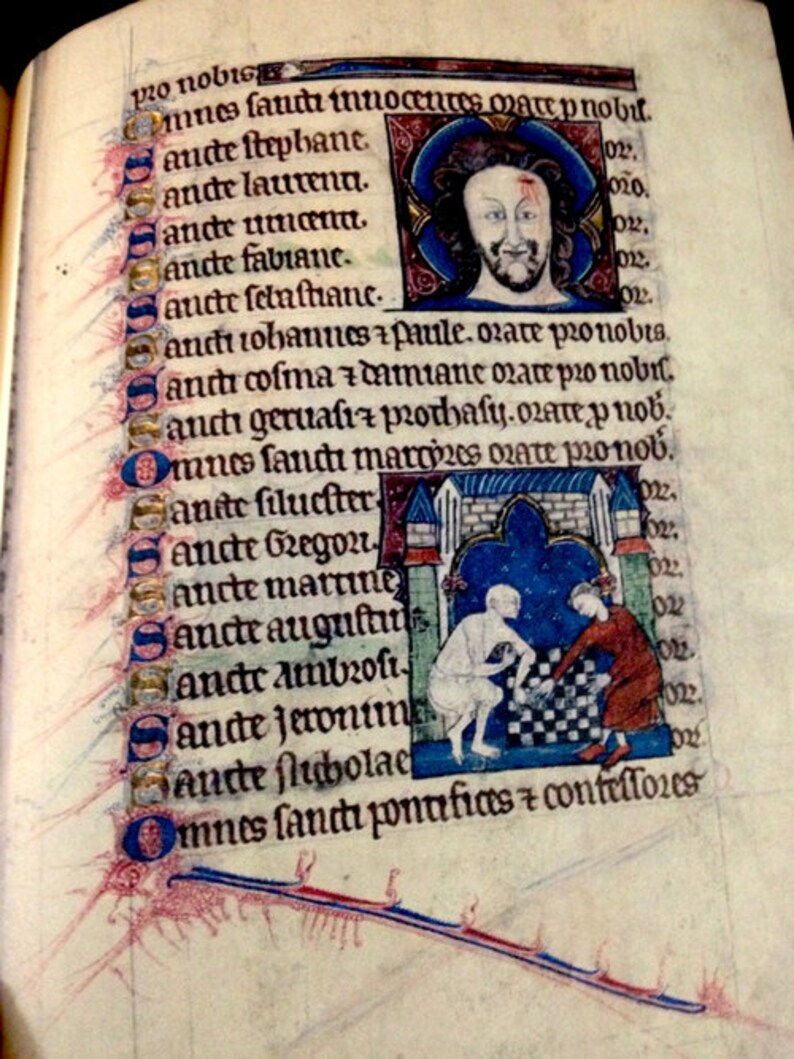 pro nobis
Omnes sancti innocentes orate p nobis.
Sancte stephane. or.
Sancte laurenti. oro.
Sancte vincenti. or.
Sancte fabiane. or.
Sancte sebastiane. or.
Sancti iohannes ⁊ paule. orate pro nobis.
Sancti cosma ⁊ damiane orate pro nobis.
Sancti geruasi ⁊ prothasij. orate ꝓ nob̄.
Omnes sancti martyres orate pro nob̄.
Sancte siluester or.
Sancte Gregori. or.
Sancte martine or.
Sancte augustin or
Sancte Ambrosi. or.
Sancte Jeronim or.
Sancte Nicholae or
Omnes sancti pontifices ⁊ confessores